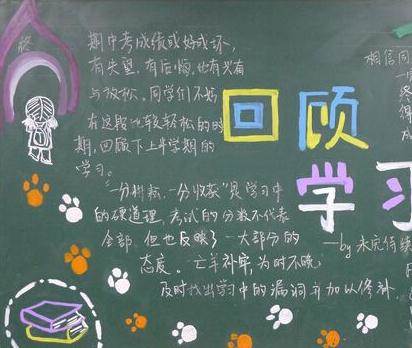 期中考成绩或好或坏，
有失望，有后悔，也有兴奋
与放松。同学们不妨
在这段比较轻松的时
期，回顾下上半学期的
学习。
"一分耕耘，一分收获"是学习中
的硬道理，考试的分数不代表
全部，但也反映了一大部分的
态度。亡羊补牢，为时不晚，
及时找出学习中的漏洞并加以修补
回顾
学习
相信同
一
终
得
成